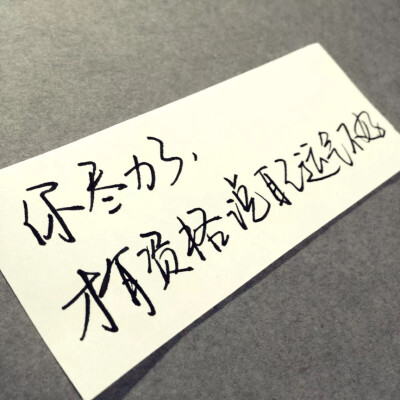 你尽力了,
才有资格说自己运气不好